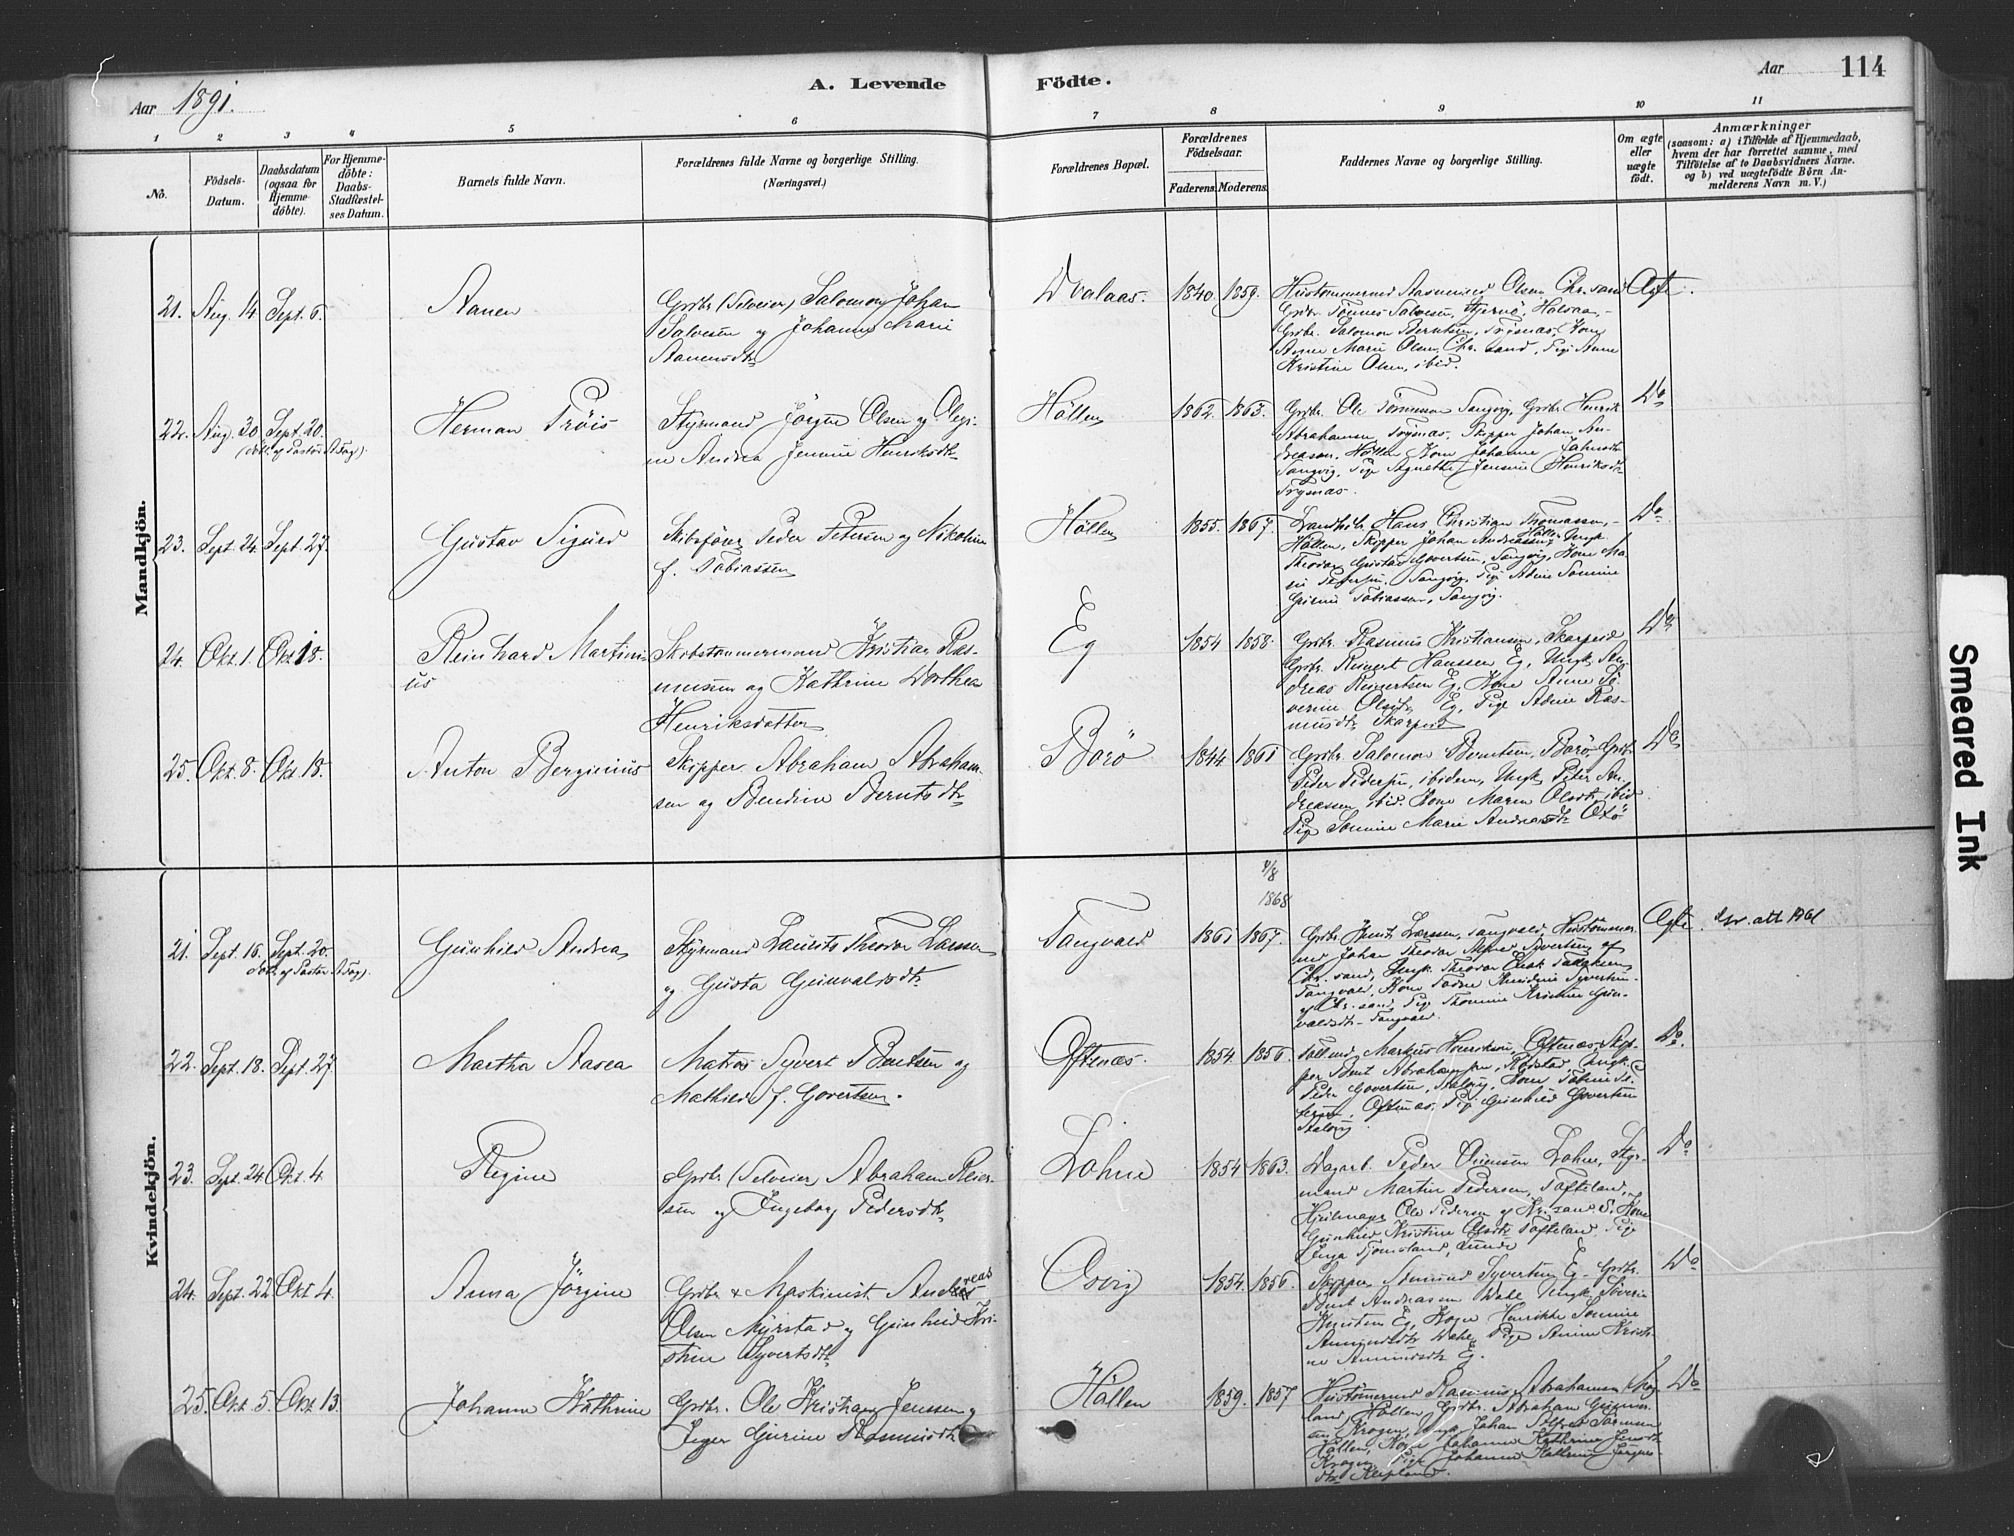 Aar 1891.
A. Levende
Födte.
Aar
114
1 2 3 4 5 6 7 8 9 10 11
No.
Födsels-
Datum.
Daabsdatum
(ogsaa for
Hjemme-
döbte).
For Hjemme-
döbte:
Daabs-
Stadfæstel-
ses Datum.
Barnets fulde Navn.
Forældrenes fulde Navne og borgerlige Stilling.
(Næringsvei.)
Forældrenes Bopæl.
Forældrenes
Födselsaar.
Faderens. Moderens.
Faddernes Navne og borgerlige Stilling.
Om ægte
eller
uægte
födt.
Anmærkninger
(saasom: a) i Tilfælde af Hjemmedaab,
hvem der har forrettet samme, med
Tilföielse af to Daabsvidners Navne.
og b) ved uægtefödte Börn An-
melderens Navn m. V.)
Mandkjön.
21. Aug. 14 Sept. 6.
Aanen
Grdbr. (Selveier) Salomon Johan
Salvesen og Johanne Marie
Aanensdtr
Dvalaas.
1840. 1859.
Olsen Chr.sand
Grdbr. Tönnes Salvesen,
Grdbr. Salomon Berntsen, Trysnæs, Kone
Anne Marie Olsen, Chr.sand, Pige Anne
Kristine Olsen, ibid.
Ægte.
22. Aug. 30 Sept. 20.
(döbt af Pastor A Fog).
Herman Tröis
Styrmand Jörgen Olsen og Olegi-
ne Andrea Jensine Henriksdtr
Höllen
1862. 1863.
Grdbr. Ole Tangvig, Grdbr. Henrik
Abrahamsen Trysnæs, Skipper Johan An-
dreassen, Höllen, Kone Johanne
Tangvig, Pige Agnette Jensine Henriksdtr
Trysnæs.
Do
23. Sept 24. Sept. 27.
Gustav Sigurd
Skibsförer Peder Petersen og Nikoline
f. Tobiassen
Höllen
1855. 1867.
Landhdlr. Hans Christian Thomassen,
Höllen, Skipper Johan Andreassen, Höllen, Ungk.
Theodor Gustav Govertsen, Tangvig, Kone Ma-
rie Pedersen, Tangvig, Pige Adne Tomine
Gurine Tobiassen, Tangvig.
Do
24. Okt. 1. Okt 18.
Reinhard Martini
us
Skibstömmermand Kristian Ras-
mussen og Kathrine Dorthea
Henriksdatter
Eg
1854 1858.
Grdbr. Rasmus Kristiansen, Skarpeid
Grdbr. Reinert Hanssen Eg, Ungk. An-
dreas Reinertsen Eg, Kone Anne Se-
verine Olsdtr Eg, Pige Adne Ras-
musdtr Skarpeid
Do
25. Okt. 8. Okt 18.
Anton Berginius
Skipper Abraham Abraham-
sen og Bendine Berntsdtr
Borö
1844 1861
Grdbr. Salomon Berntsen, Borö, Grdbr.
Peder Pedersen, ibidem, Ungk. Peter An-
dreassen, ibid. Kone Maren Olsdtr ibid
Pige Tomine Marie Andreasdtr Oxö
Do
Kvindekjön.
21. Sept. 16. Sept. 20.
(döbt af Pastor A Fog).
Gunhild Andrea
Styrmand Laurits Theodor Larsen
og Gusta Gunvaldsdtr
Tangvald
1861 1867.
4/8
1868
Grdbr. Larsen, Tangvald, Hustömmer-
md Johan Theodor Alfred Syvertsen af
Chr.sand, Ungk. Theodor
Tangvald, Kone Syvertsen
af Chr.sand, Pige Thomine Kristine Gun-
valdsdtr Tangvald.
Ægte
22. Sept. 18. Sept. 27
Martha Aasea
Matros Syvert Berntsen og
Mathilde f. Govertsen.
Oftenæs.
1854. 1856.
Markus Henriksen, Oftenæs, Skip-
per Bernt Abrahamsen, Ungk.
Peder Govertsen, Kone
Oftenæs, Pige Gunhild Govertsen
Do.
23. Sept. 24 Okt. 4
Regine
Grdbr. (Selveier Abraham Reier-
sen og Ingeborg Pedersdtr
Lohne
1854 1863.
Dagarb. Peder Lohne, Styr-
mand Martin Pedersen, Tofteland,
Ole Pedersen af Kr.sand S. Kone
Gunhild Kristine Olsdtr Tofteland, Pige
Inga Tjomsland, Lunde
Do
24. Sept. 22 Okt 4.
Anna Jörgine
Grdbr & Maskinist Andreas
Olsen Myrstad og Gunhild Kri-
stine Syvertsdtr
Osvig
1854. 1856.
Skipper Syvertsen Eg Grdbr.
Bernt Andreassen Dale Ungk. Severin
Knutsen Eg, Kone Henrikke Tomine
Amundsdtr Dale, Pige Anne Kristi-
ne Amundsdtr Eg.
Do
25. Okt. 5. Okt. 13.
Johanne Kathrine
Grdbr. Ole Kristian Jenssen og
Inger Gurine Rasmusdtr
Höllen
1859. 1857
Hustömmermd Rasmus Abrahamsen
Höllen, Grdbr. Abraham Gunner-
sen Krogen, Ungk. Johan Alfred
Höllen, Kone Johanne Kathrine Jensdtr
Krogen, Pige Johanne Kathrine Jörgens-
dtr Klepland.
Do
Smeared Ink